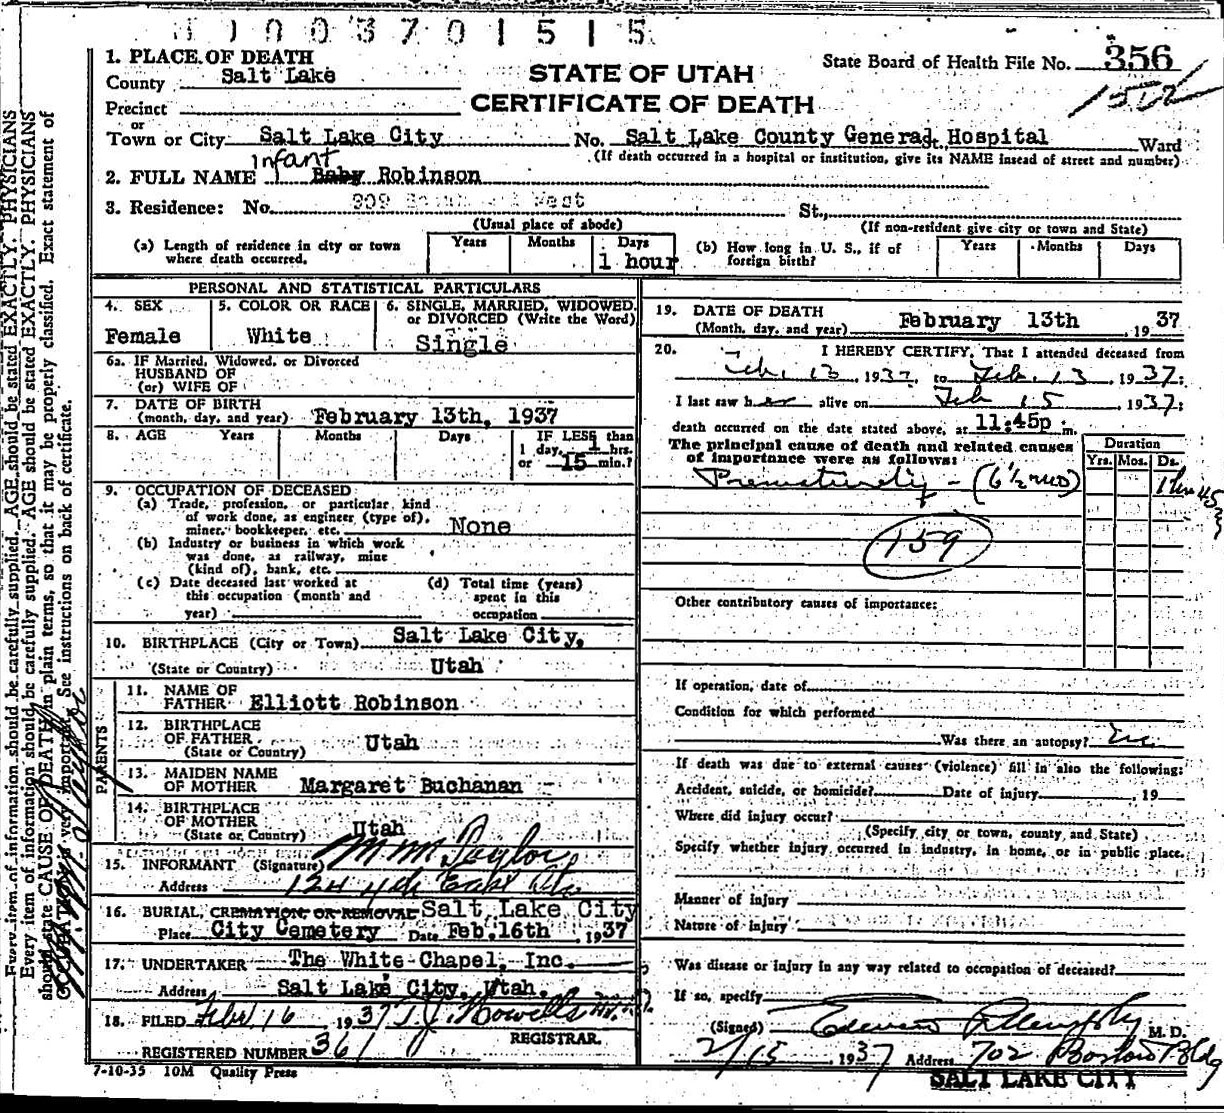 0 0 3 7 0 1 5 1 5
1. PLACE OF DEATH
County Salt Lake
STATE OF UTAH
CERTIFICATE OF DEATH
State Board of Health File No. 356
Precinct
or
Town or City Salt Lake City No. Salt Lake County General Hospital St., Ward
(If death occurred in a hospital or institution, give its NAME insead of street and number)
Infant
2. FULL NAME Baby Robinson
3. Residence: No. 309 West St.,
(Usual place of abode) (If non-resident give city or town and State)
(a) Length of residence in city or town where death occurred. Years Months Days 1 hour
(b) How long in U. S., if of foreign birth? Years Months Days
PERSONAL AND STATISTICAL PARTICULARS
4. SEX Female
5. COLOR OR RACE White
6. SINGLE, MARRIED, WIDOWED, or DIVORCED (Write the Word) Single
6a. IF Married, Widowed, or Divorced
HUSBAND OF
(or) WIFE OF
7. DATE OF BIRTH
(month, day, and year) February 13th, 1937
8. AGE Years Months Days IF LESS than
1 day, 1 hrs.
or 15 min.?
9. OCCUPATION OF DECEASED
(a) Trade, profession, or particular kind
of work done, as engineer (type of),
miner, bookkeeper, etc. None
(b) Industry or business in which work
was done, as railway, mine
(kind of), bank, etc.
(c) Date deceased last worked at
this occupation (month and
year)
(d) Total time (years)
spent in this
occupation
10. BIRTHPLACE (City or Town) Salt Lake City,
(State or Country) Utah
PARENTS
11. NAME OF
FATHER Elliott Robinson
12. BIRTHPLACE
OF FATHER
(State or Country) Utah
13. MAIDEN NAME
OF MOTHER Margaret Buchanan
14. BIRTHPLACE
OF MOTHER
(State or Country) Utah
15. INFORMANT (Signature) M M Taylor
Address 124 4th East
16. BURIAL, CREMATION, OR REMOVAL Salt Lake City
Place City Cemetery Date Feb. 16th, 1937
17. UNDERTAKER The White Chapel, Inc.
Address Salt Lake City, Utah.
18. FILED Feb 16 1937 T. J. Howells
REGISTRAR.
REGISTERED NUMBER 367
7-10-35 10M Quality Press
19. DATE OF DEATH
(Month, day, and year) February 13th, 1937
20. I HEREBY CERTIFY, That I attended deceased from
Feb. 13, 1937, to Feb. 13, 1937;
I last saw her alive on Feb 15 1937;
death occurred on the date stated above, at 11:45p m.
The principal cause of death and related causes
of importance were as follows:
Duration
Yrs. Mos. Ds.
Prematurity - (6 1/2 mo) 1 hr 45
159
Other contributory causes of importance:
If operation, date of
Condition for which performed
Was there an autopsy?
If death was due to external causes (violence) fill in also the following:
Accident, suicide, or homicide? Date of injury , 19
Where did injury occur?
(Specify city or town, county and State)
Specify whether injury occurred in industry, in home, or in public place.
Manner of injury
Nature of injury
Was disease or injury in any way related to occupation of deceased?
If so, specify
(Signed) M. D.
2/15 1937 Address 702 Boston Bldg
SALT LAKE CITY
Every item of information should be carefully supplied. AGE should be stated EXACTLY. PHYSICIANS
Every item of information should be carefully supplied. AGE should be stated EXACTLY. PHYSICIANS
should state CAUSE OF DEATH in plain terms, so that it may be properly classified. Exact statement of
OCCUPATION is very important. See instructions on back of certificate.